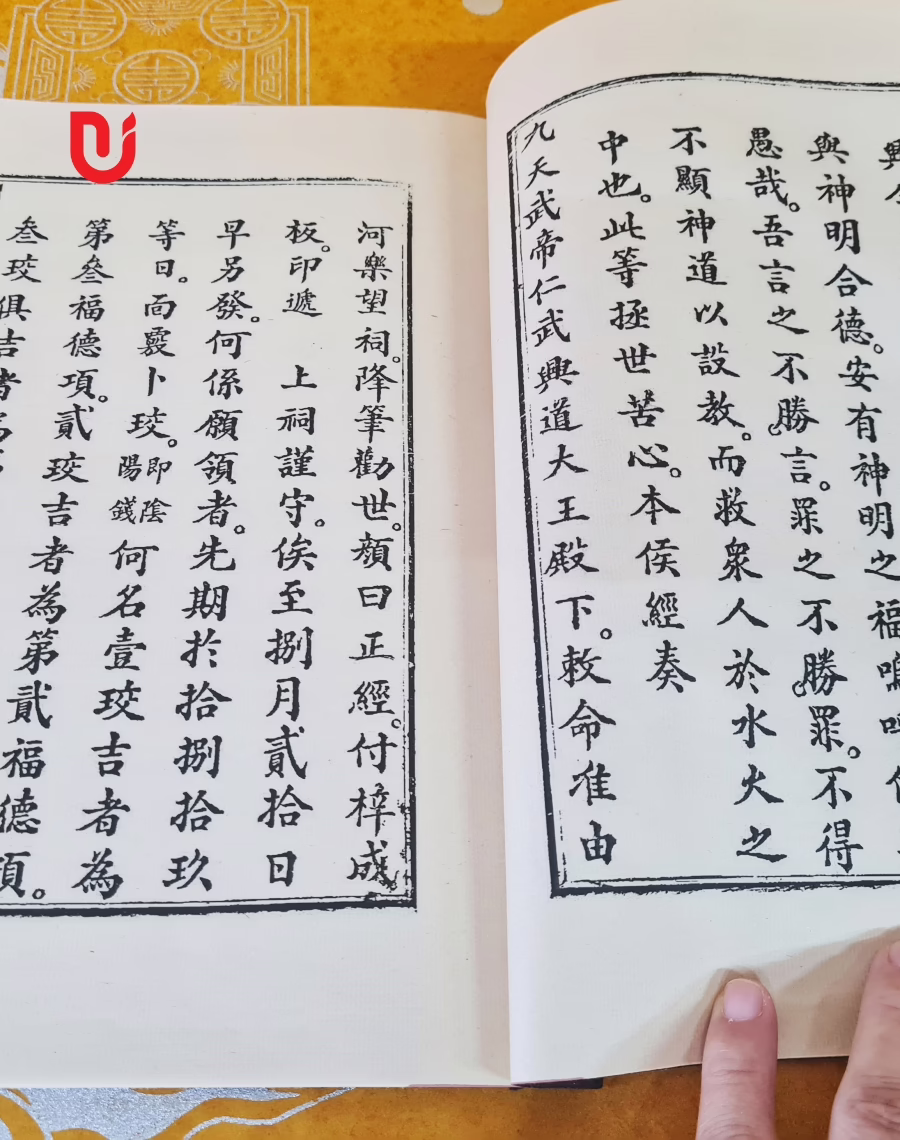 與神明合德。安有神明之福嗚呼
愚哉。吾言之不勝。言。罪之不勝。罪。不得
不顯神道以設教。而救衆人於水火之
中也。此等拯世苦心。本侯經奏
九天武帝仁武興道大王殿下。敕命准由
河樂望祠。降筆勸世。顏曰正經。付梓成
板。印遞 上祠謹守。俟至捌月貳拾日
早另發。何係願領者。先期於拾捌拾玖
等日。面覈卜珓。即陰陽錢何名壹珓吉者為
第叁福德項。貳珓吉者為第貳福德項。
叁珓俱吉者